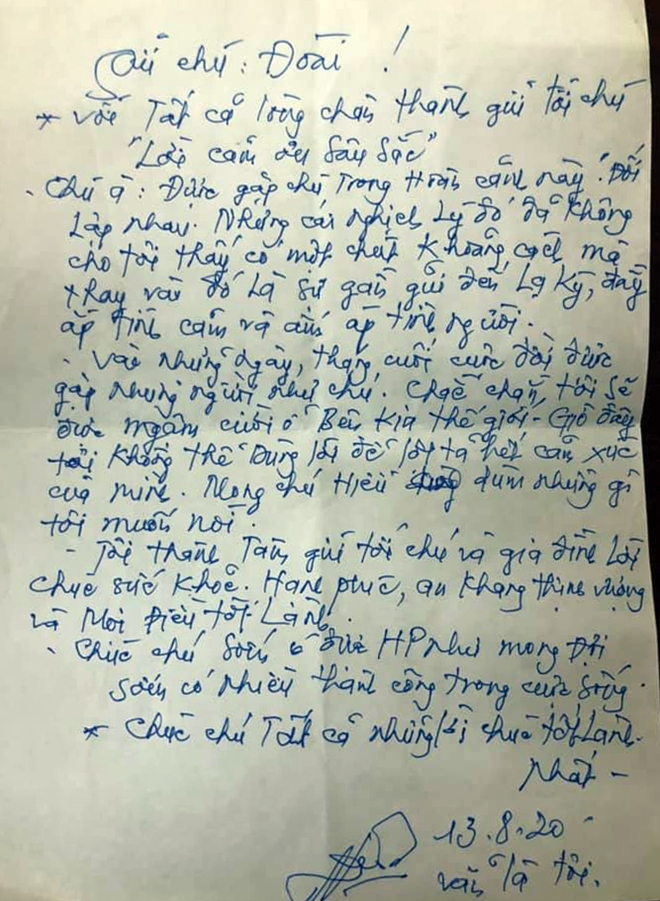 Gửi chú: Đoài !
* Với Tất cả lòng chân thành gửi tới chú
"Lời cảm ơn sâu sắc"
- Chú à: Được gặp chú Trong Hoàn cảnh này! Đối
Lập nhau. Những cái nghịch Lý đó đã không
cho tôi thấy có một chút khoảng cách mà
thay vào đó là sự gần gũi đến Lạ kỳ, đầy
ắp tình cảm và ấm áp tình người.
- Vào những ngày, tháng cuối cuộc đời được
gặp những người như chú. Chắc chắn, tôi sẽ
được ngậm cười ở Bên kia thế giới - Giờ đây
tôi không thể Dùng lời để lột tả hết cảm xúc
của mình. Mong chú Hiểu dùm những gì
tôi muốn nói.
- Tôi thành Tâm gửi tới chú và gia đình Lời
chúc sức khoẻ. Hạnh phúc, an khang thịnh vượng
và Mọi Điều tốt Lành.
- Chúc chú Sớm được HP như mong Đợi
sớm có nhiều thành công trong cuộc sống.
* Chúc chú Tất cả những lời chúc tốt Lành.
Nhất -
13.8.20
vẫn là tôi.